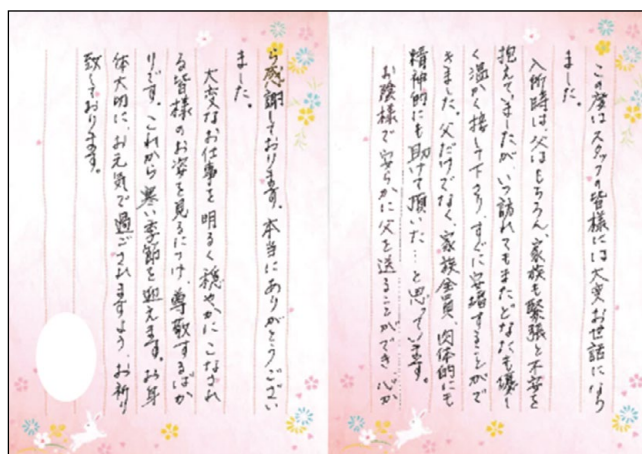 この度はスタッフの皆様には大変お世話になり
ました。
入所時は、父はもちろん、家族も緊張と不安を
抱えていましたが、いつ訪れてもまたどなたも優し
く温かく接して下さり、すぐに安堵することがで
きました。父だけでなく、家族全員、肉体的にも
精神的にも助けて頂いた…と思っています。
お陰様で安らかに父を送ることができ心か
ら感謝しております。本当にありがとうござい
ました。
大変なお仕事を明るく穏やかにこなされ
る皆様のお姿を見るにつけ、尊敬するばか
りです。これから寒い季節を迎えます。お身
体大切に、お元気で過ごされますよう、お祈り
致しております。